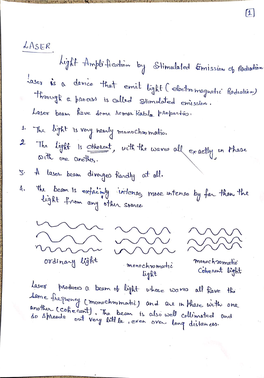 [1]
LASER
Light Amplification by Stimulated Emission of Radiation
Laser is a device that emit light (electromagnetic Radiation)
through a process is called stimulated emission.
Laser beam have some remarkable properties.
1. The light is very nearly monochromatic.
2. The light is coherent, with the waves all exactly in phase
with one another.
3. A laser beam diverges hardly at all.
4. The beam is extremely intense, more intense by far than the
light from any other source
ordinary light
monochromatic
light
monochromatic
Coherent light
Laser produces a beam of light whose waves all have the
same frequency (monochromatic) and are in phase with one
another (coherent). The beam is also well collimated and
so spreads out very little, even over long distances.